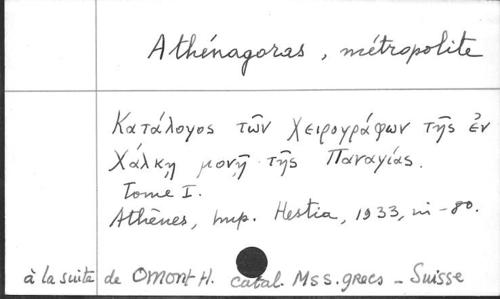 Athénagoras, métropolite
Κατάλογος τῶν χειρογράφων τῆς ἐν
Χάλκῃ μονῇ τῆς Παναγίας.
Tome I.
Athènes, Imp. Hestia, 1933, in-8o.
à la suite de OMONT H. catal. Mss. grecs - Suisse